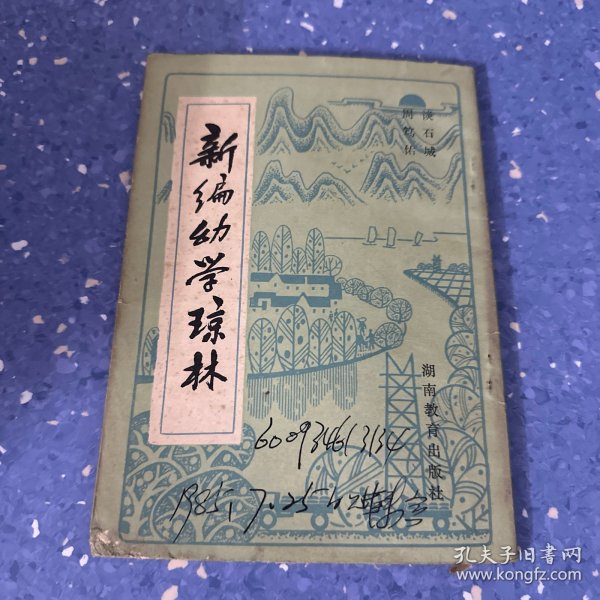 新编幼学琼林
谈石城
周笃佑
湖南教育出版社
600934613134
1985,7.25
孔夫子旧书网
www.kongfz.com